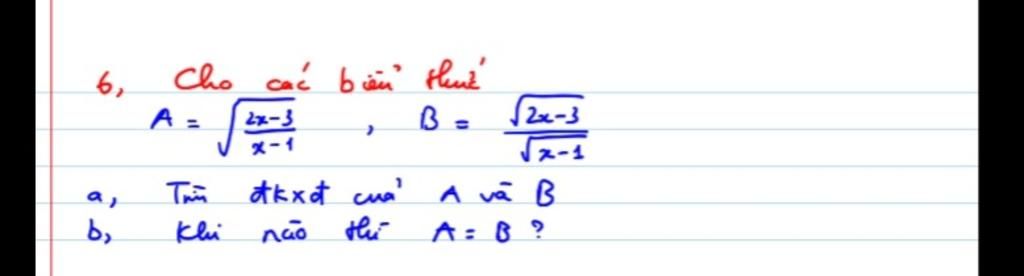 6, Cho các biểu thức
A = √(2x-3 / x-1) , B = √2x-3 / √x-1
a, Tìm đkxđ của A và B
b, Khi nào thì A = B ?